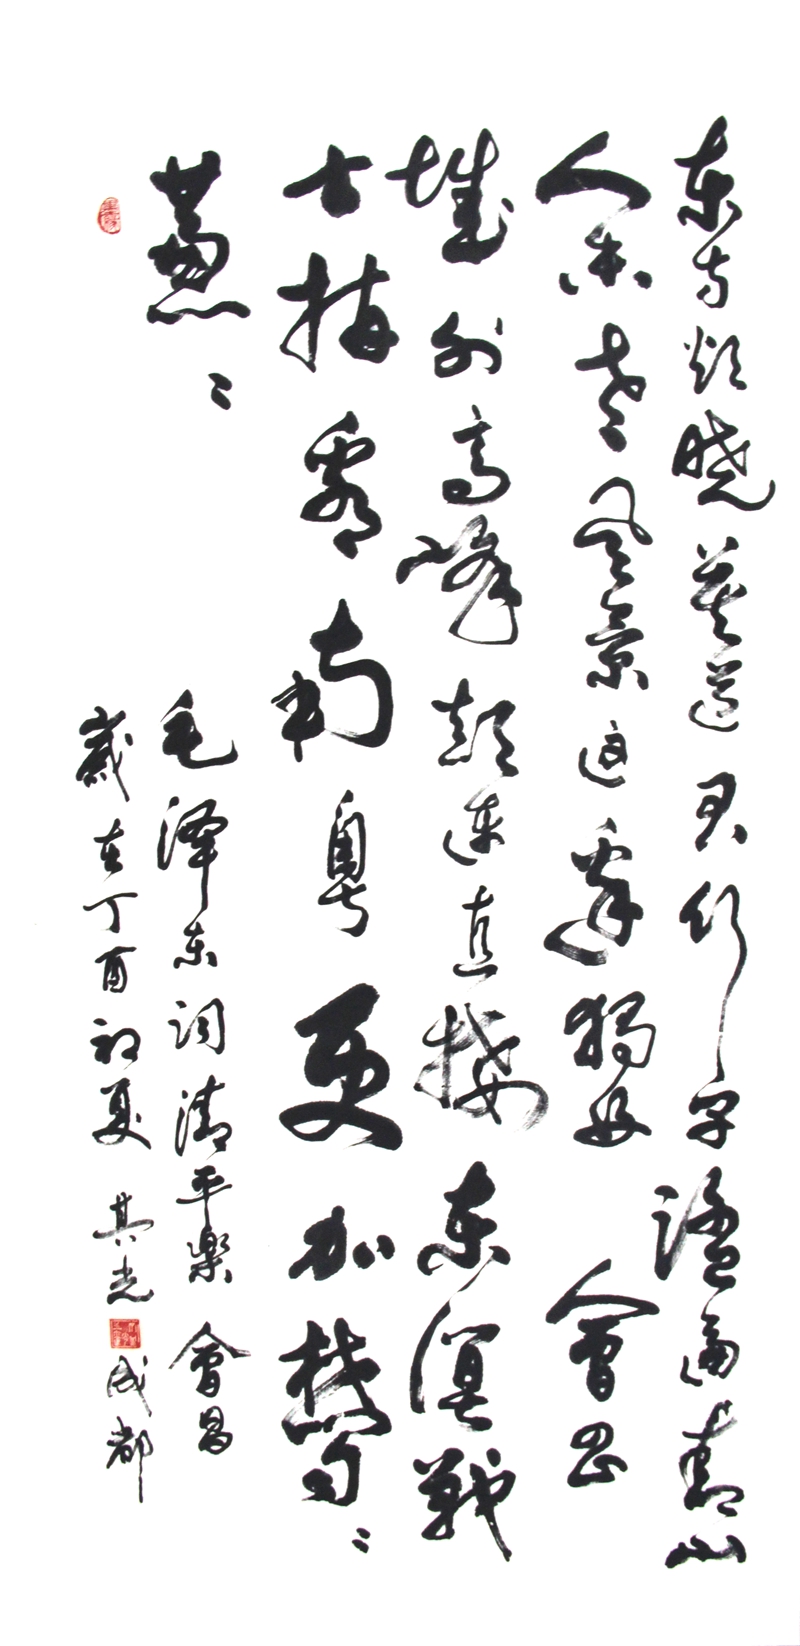 东方欲晓莫道君行早踏遍青山
人未老风景这边独好會昌
城外高峰颠连直接东溟战
士指看南粤更加鬱〻
蔥〻
毛泽东词清平樂會昌
歲在丁酉初夏其光成都